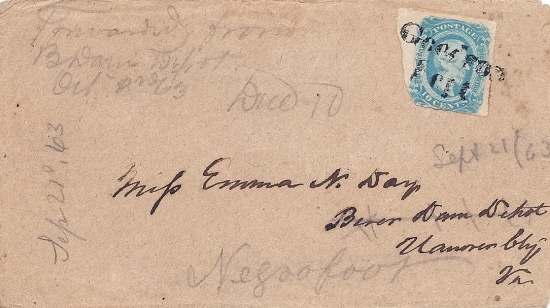 Forwarded from
B Dam Depot
Oct 2nd 63
Due 10
POSTAGE
TEN CENTS
Sept 21/63
Sep 21st, 63
Miss Emma N. Day
Bever Dam Depot
Hanover Cty
Va
Negrofoot